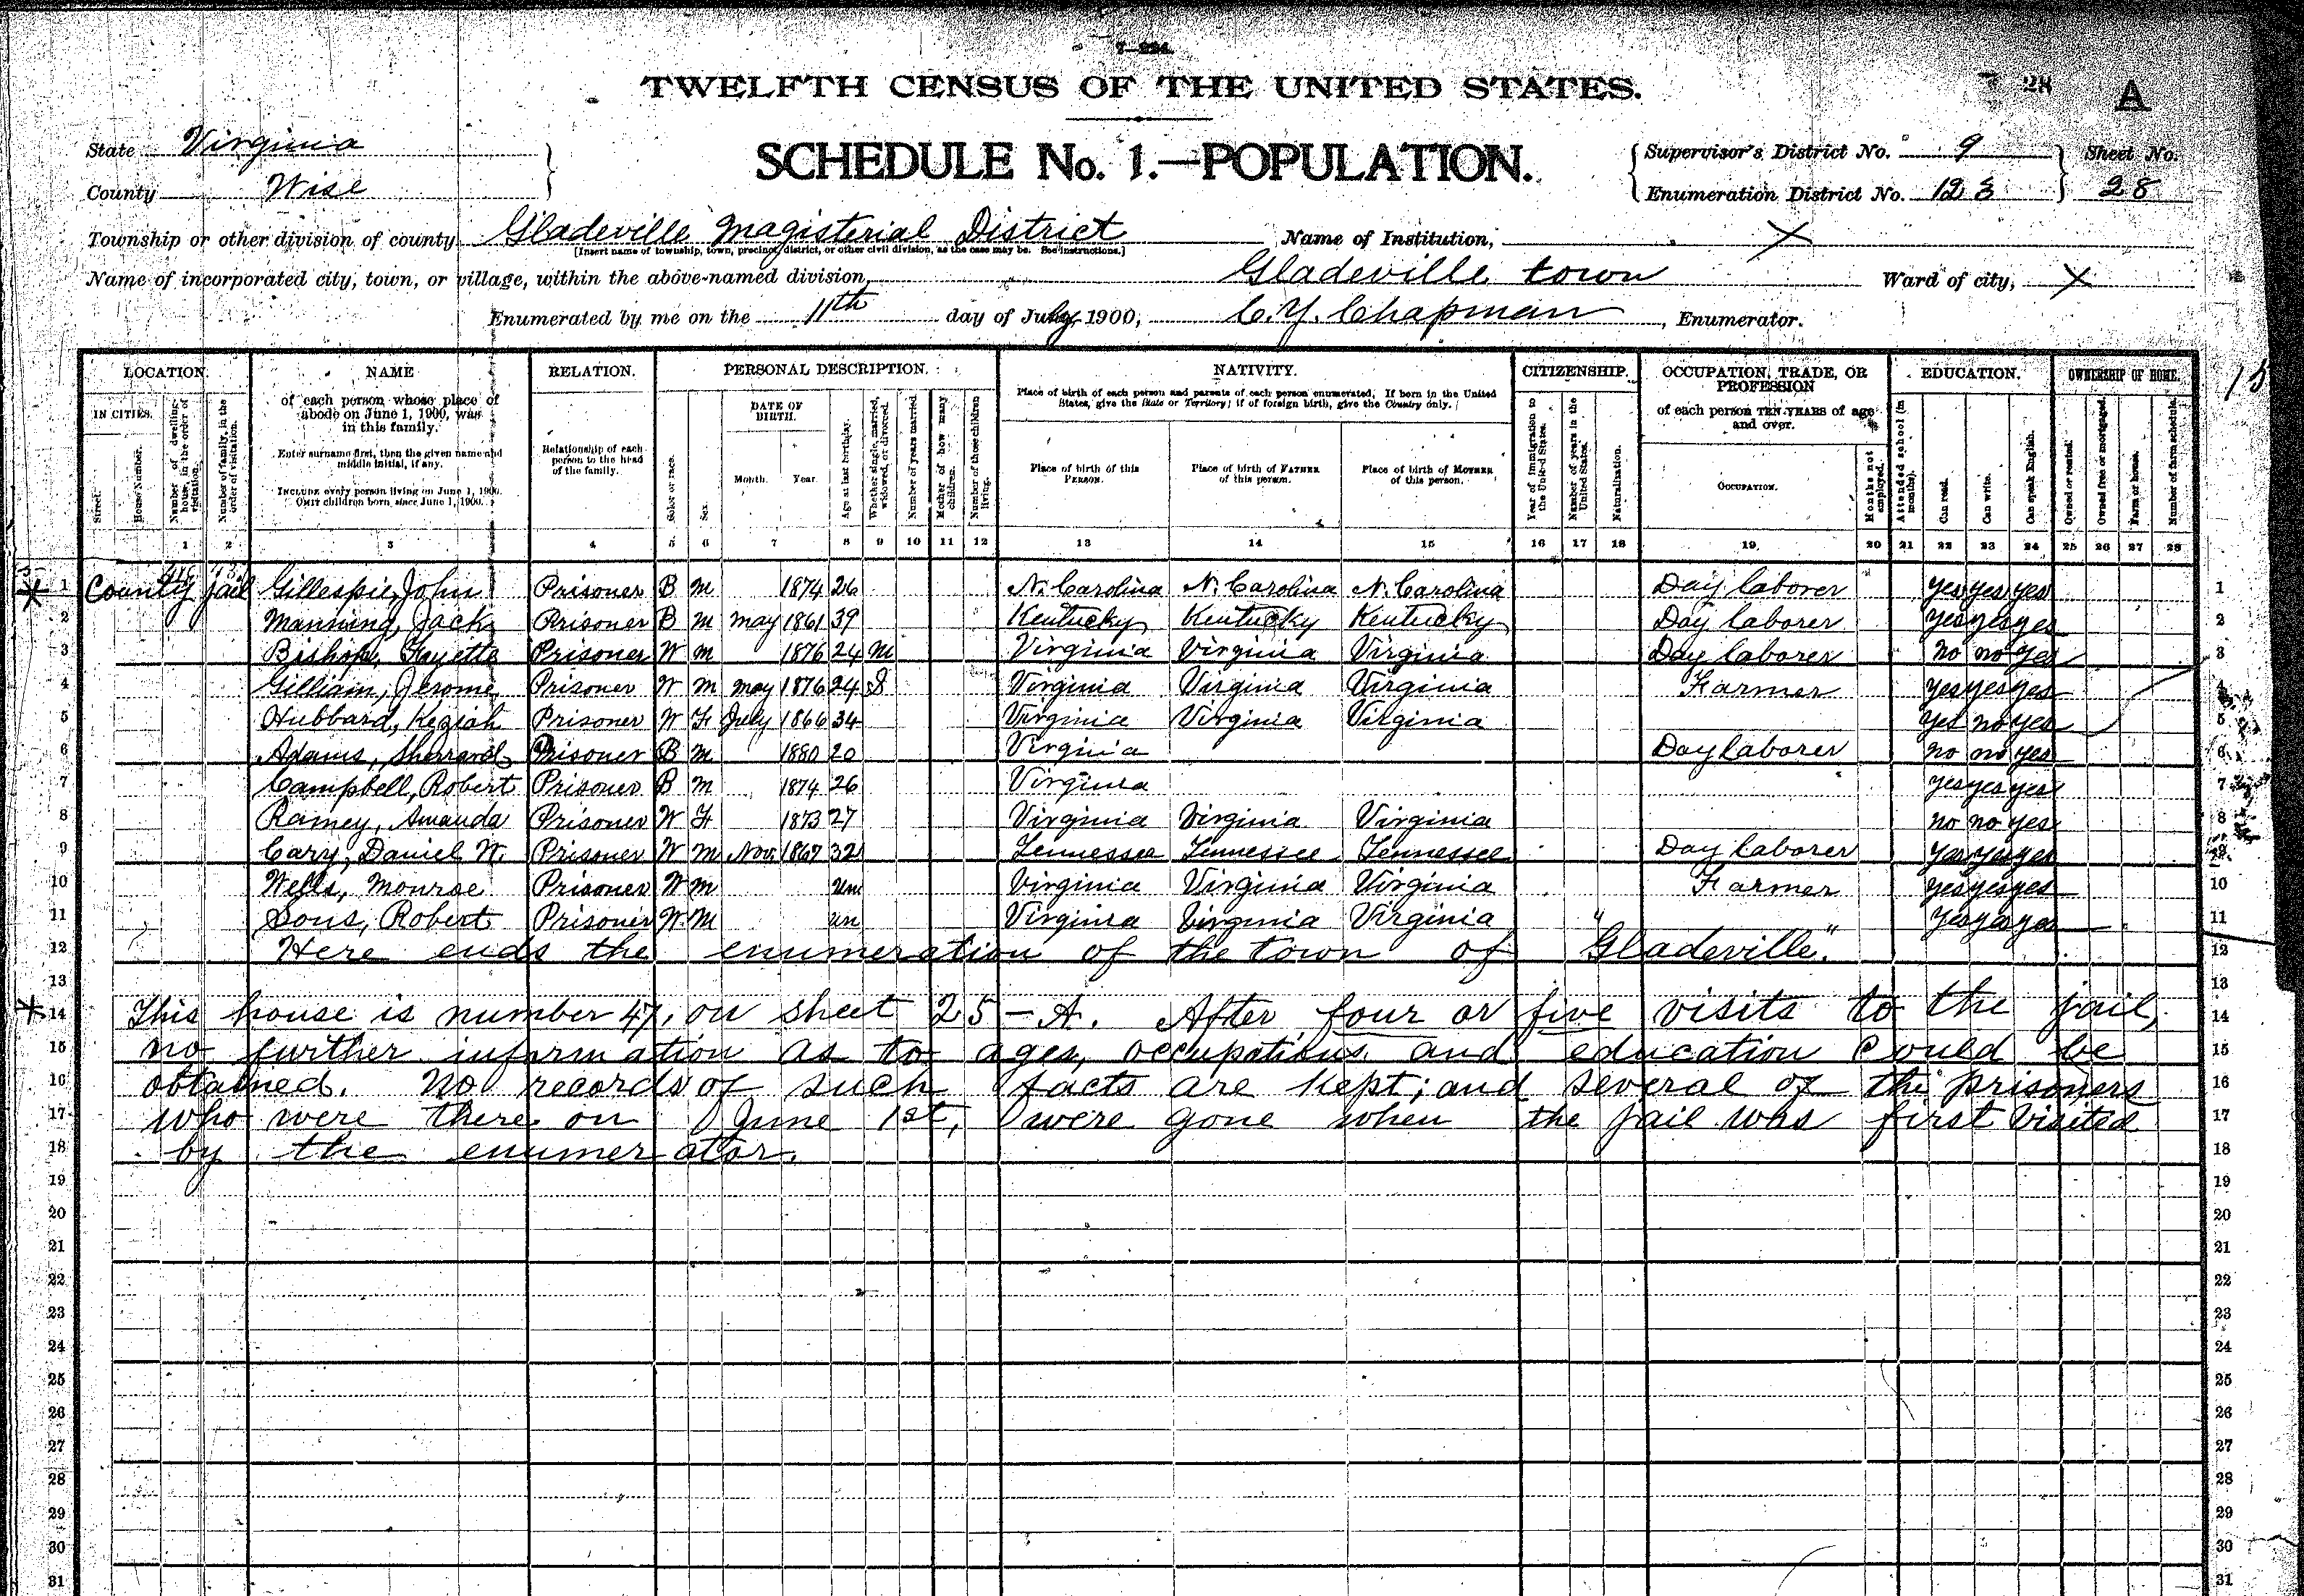 7—224.
TWELFTH CENSUS OF THE UNITED STATES.
28
A
State Virginia
County Wise
SCHEDULE No. 1.—POPULATION.
Supervisor's District No. 9
Enumeration District No. 123
Sheet No.
28
Township or other division of county Gladeville Magisterial District
[Insert name of township, town, precinct, district, or other civil division, as the case may be. See instructions.]
Name of Institution, X
Name of incorporated city, town, or village, within the above-named division, Gladeville town
Ward of city, X
Enumerated by me on the 11th day of July, 1900, C. Y. Chapman, Enumerator.
LOCATION. NAME RELATION. PERSONAL DESCRIPTION. NATIVITY. CITIZENSHIP. OCCUPATION, TRADE, OR PROFESSION EDUCATION. OWNERSHIP OF HOME.
IN CITIES.
Street.
House Number.
Number of dwelling-house, in the order of visitation.
Number of family, in the order of visitation.
of each person whose place of abode on June 1, 1900, was in this family.
Enter surname first, then the given name and middle initial, if any.
INCLUDE every person living on June 1, 1900.
OMIT children born since June 1, 1900.
Relationship of each person to the head of the family.
Color or race.
Sex.
DATE OF BIRTH.
Month. Year.
Age at last birthday.
Whether single, married, widowed, or divorced.
Number of years married.
Mother of how many children.
Number of these children living.
Place of birth of each person and parents of each person enumerated. If born in the United States, give the State or Territory; if of foreign birth, give the Country only.
Place of birth of this PERSON.
Place of birth of FATHER of this person.
Place of birth of MOTHER of this person.
Year of immigration to the United States.
Number of years in the United States.
Naturalization.
of each person TEN YEARS of age and over.
OCCUPATION.
Months not employed.
Attended school (in months).
Can read.
Can write.
Can speak English.
Owned or rented.
Owned free or mortgaged.
Farm or house.
Number of farm schedule.
1 2 3 4 5 6 7 8 9 10 11 12 13 14 15 16 17 18 19 20 21 22 23 24 25 26 27 28
1 County jail Gillespie, John Prisoner B M 1874 26 N. Carolina N. Carolina N. Carolina Day laborer yes yes yes 1
2 Manning, Jack Prisoner B M May 1861 39 Kentucky Kentucky Kentucky Day laborer yes yes yes 2
3 Bishop, Fayette Prisoner W M 1876 24 M Virginia Virginia Virginia Day laborer no no yes 3
4 Gilliam, Jerome Prisoner W M May 1876 24 S Virginia Virginia Virginia Farmer yes yes yes 4
5 Hubbard, Keziah Prisoner W F July 1866 34 Virginia Virginia Virginia yes no yes 5
6 Adams, Sherrard Prisoner B M 1880 20 Virginia Day laborer no no yes 6
7 Campbell, Robert Prisoner B M 1874 26 Virginia yes yes yes 7
8 Ramey, Amanda Prisoner W F 1873 27 Virginia Virginia Virginia no no yes 8
9 Cary, Daniel W. Prisoner W M Nov 1867 32 Tennessee Tennessee Tennessee Day laborer yes yes yes 9
10 Wells, Monroe Prisoner W M un Virginia Virginia Virginia Farmer yes yes yes 10
11 Sous, Robert Prisoner W M un Virginia Virginia Virginia yes yes yes 11
12 Here ends the enumeration of the town of "Gladeville." 12
13 13
14 This house is number 47, on sheet 25-A. After four or five visits to the jail, 14
15 no further information as to ages, occupations and education could be 15
16 obtained. No records of such facts are kept; and several of the prisoners 16
17 who were there on June 1st, were gone when the jail was first visited 17
18 by the enumerator. 18
19 19
20 20
21 21
22 22
23 23
24 24
25 25
26 26
27 27
28 28
29 29
30 30
31 31